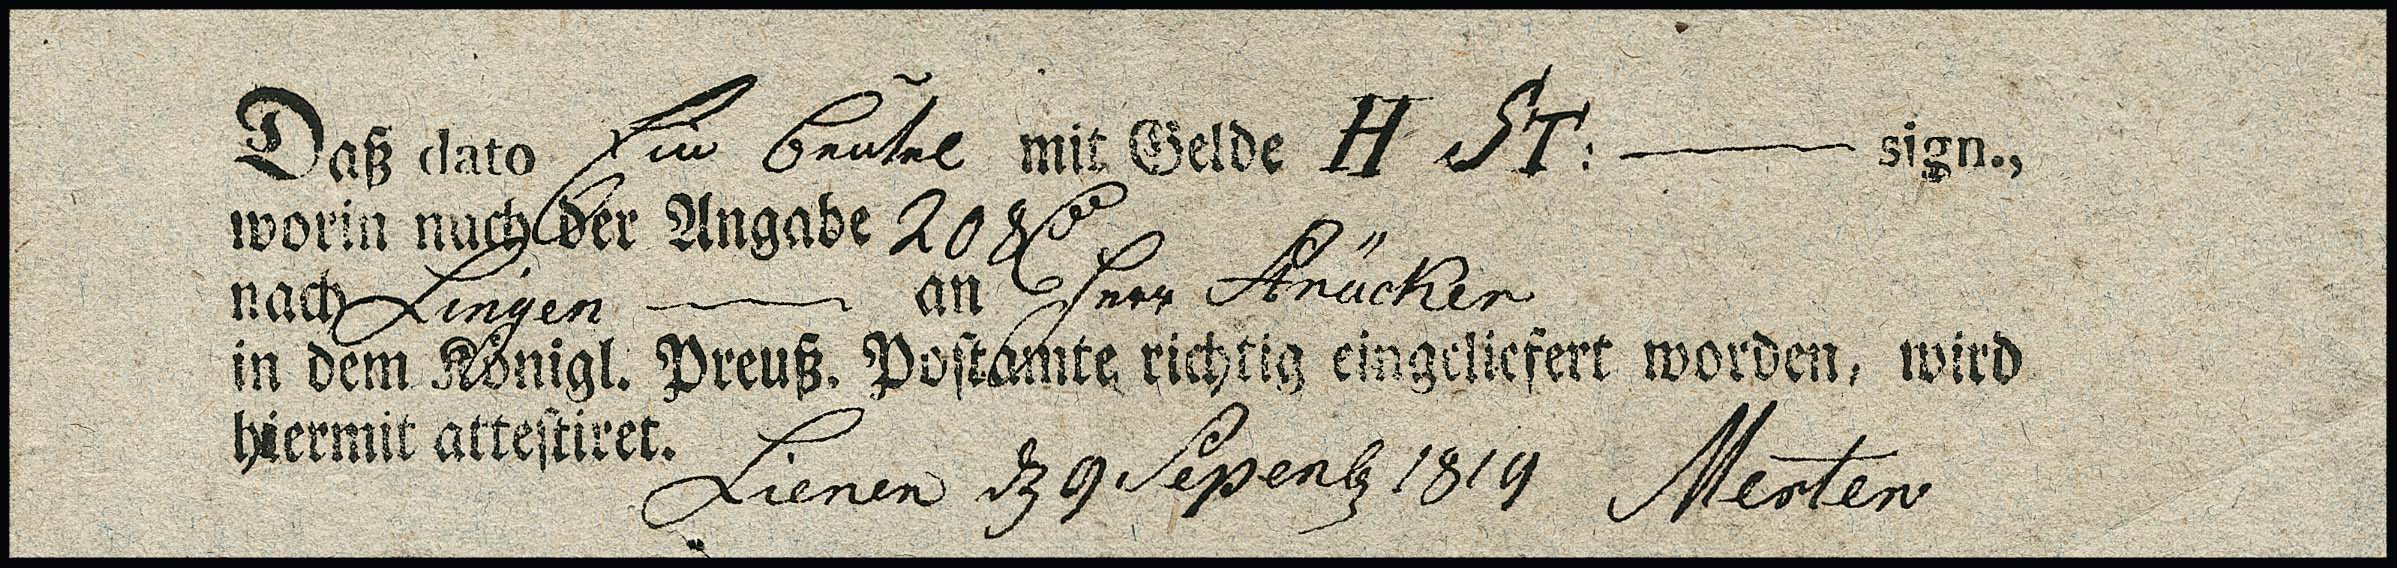 Daß dato Ein beutel mit Gelde H ST: sign.,
worin nach der Angabe 20
nach Lingen an Herr Strücker
in dem Königl. Preuß. Postamte richtig eingeliefert worden, wird
hiermit attestiret.
Lienen 9 1819 Merten